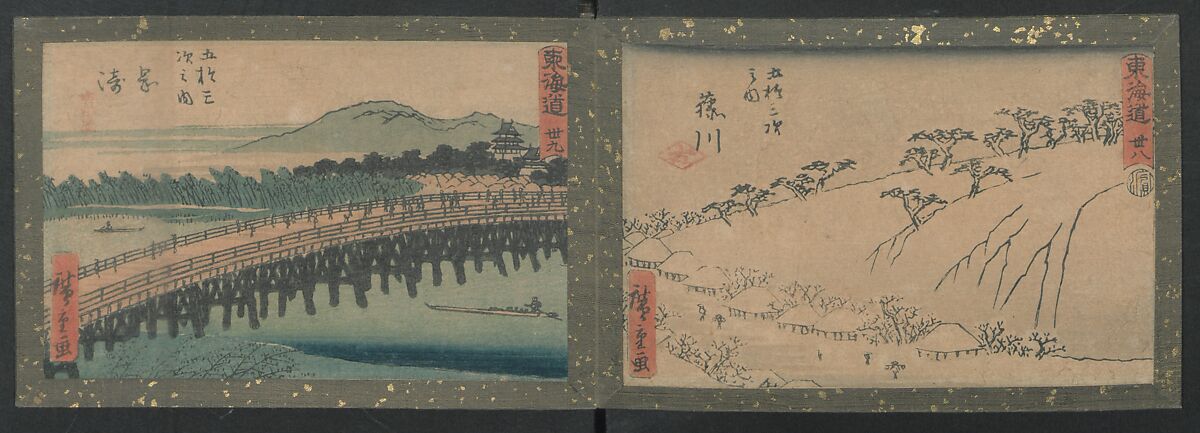 東海道 卅八
五拾三次
之内
藤川
廣重画
東海道 卅九
五拾三
次之内
岡崎
廣重画